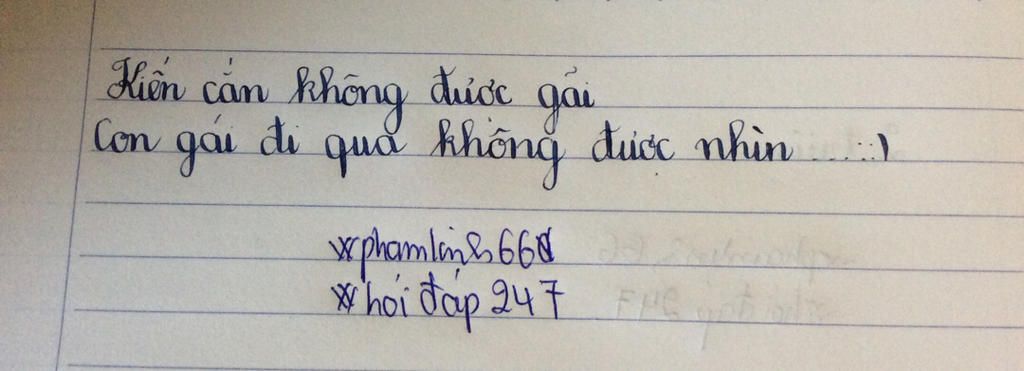 Kiến cắn không được gãi
Con gái đi qua không được nhìn .....:)
phamlinh66
hỏi đáp 247